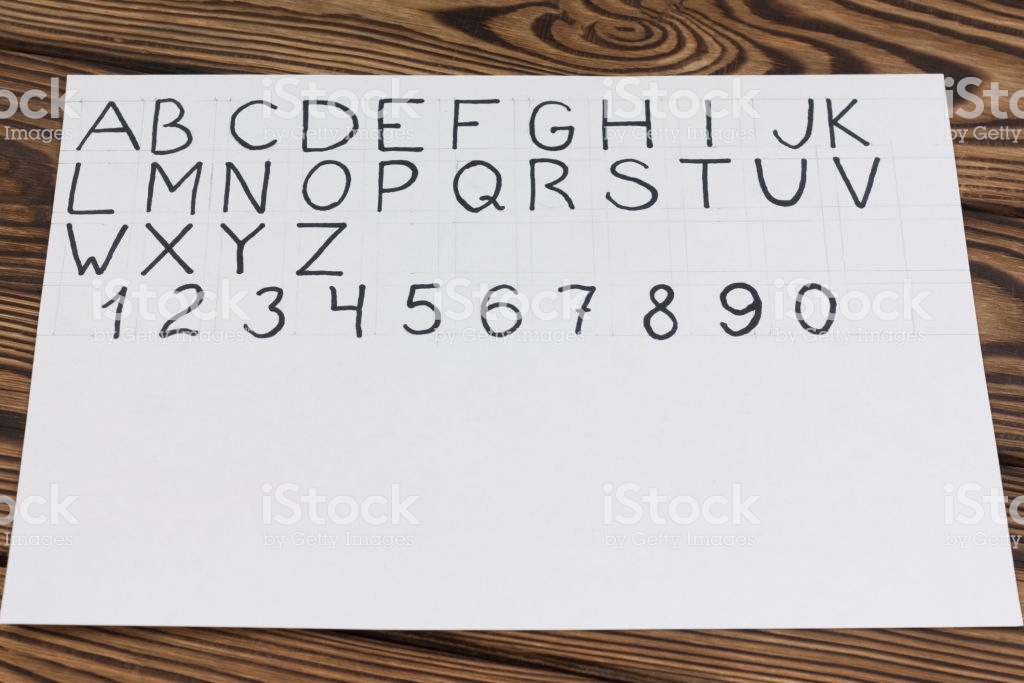 A B C D E F G H I J K
L M N O P Q R S T U V
W X Y Z
1 2 3 4 5 6 7 8 9 0
iStock
by Getty Images